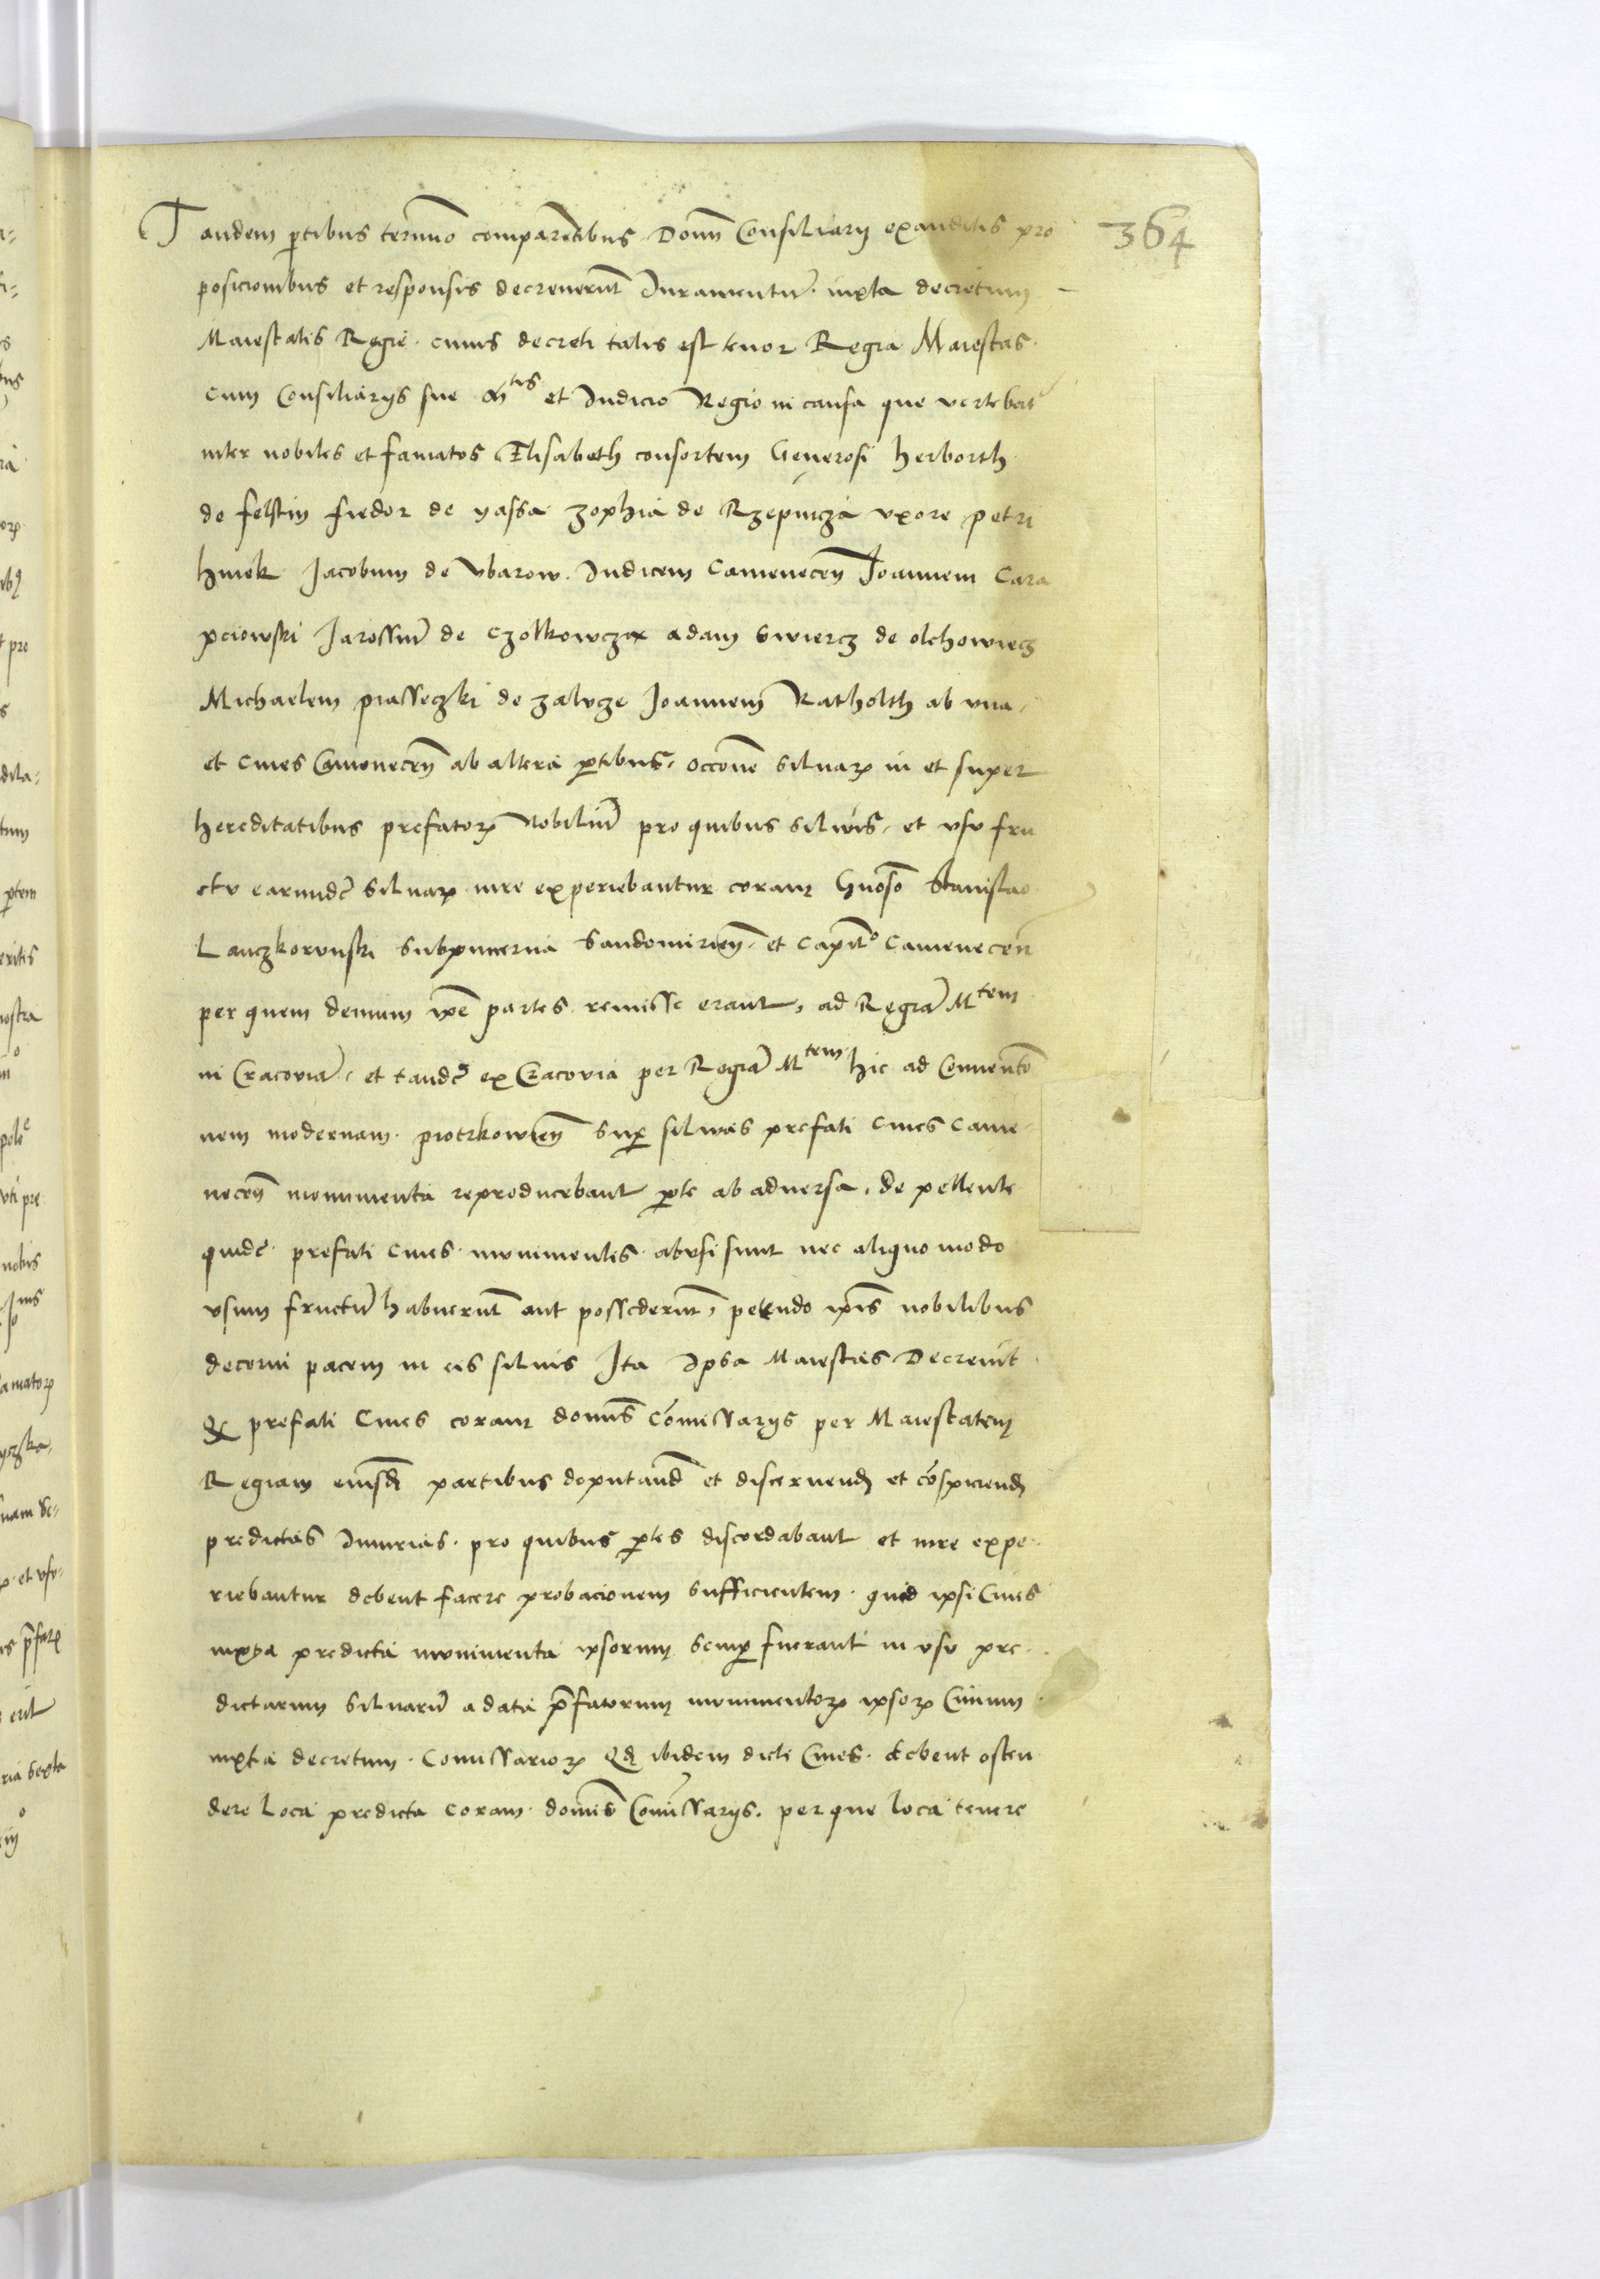 364
Tandem ptibus termino comparentibus Domini Consiliarij exauditis pro
posicionibus et responsis decreuerunt Iuramentum iuxta decretum
Maiestatis Regie cuius decreti talis est tenor Regia Maiestas
cum Consiliarijs sue Mtis et Iudicio Regio in causa que vertebat
inter nobiles et famatos Elisabeth consortem Generosi herborth
de felstin fiedor de yassa zophia de Rzepincza vxore petri
hinek Jacobum de Vbarow Iudicem Camenecen Joannem Cara
pciowski Jarossium de Czolkowcza adam Swiercz de olchowiecz
Michaelem piasseczki de zalvcze Joannem Ratholth ab vna
et Ciues Camenecen ab altera ptibus, occone siluarum in et super
hereditatibus prefatorum Nobilium pro quibus siluis et vsu fru
ctu earundem siluarum iure experiebantur coram Gnoso Stanislao
Lanczkorunski Subpincerna Sandomirien et Capito Camenecen
per quem demum ipse partes remisse erant, ad Regiam Mtem
in Cracouia, et tandem ex Cracouia per Regiam Mtem hic ad Conuento
nem modernam piotrkowien Super siluas prefati Ciues Came
necen monumenta reproducebant pte ab aduersa, de pellente
quidem prefati Ciues munimentis abusi sunt nec aliquo modo
vsum fructum habuerunt aut possederunt, petendo ipsis nobilibus
decerni pacem in eis siluis Ita Ipsa Maiestas Decreuit
Quod prefati Ciues coram dominis Comissarijs per Maiestatem
Regiam eiusdem partibus deputand et discernend et conspiciend
predictas Iniurias pro quibus ptes discordabant et iure expe
riebantur debent facere probacionem sufficientem quod ipsi Ciues
iuxta predicta munimenta ipsorum semper fuerant in vsu pre
dictarum siluarum a data prefatorum monumentorum ipsorum Ciuium
iuxta decretum Comissariorum Quod ibidem dicti Ciues debent osten
dere loca predicta coram dominis Comissarijs per que loca tenere